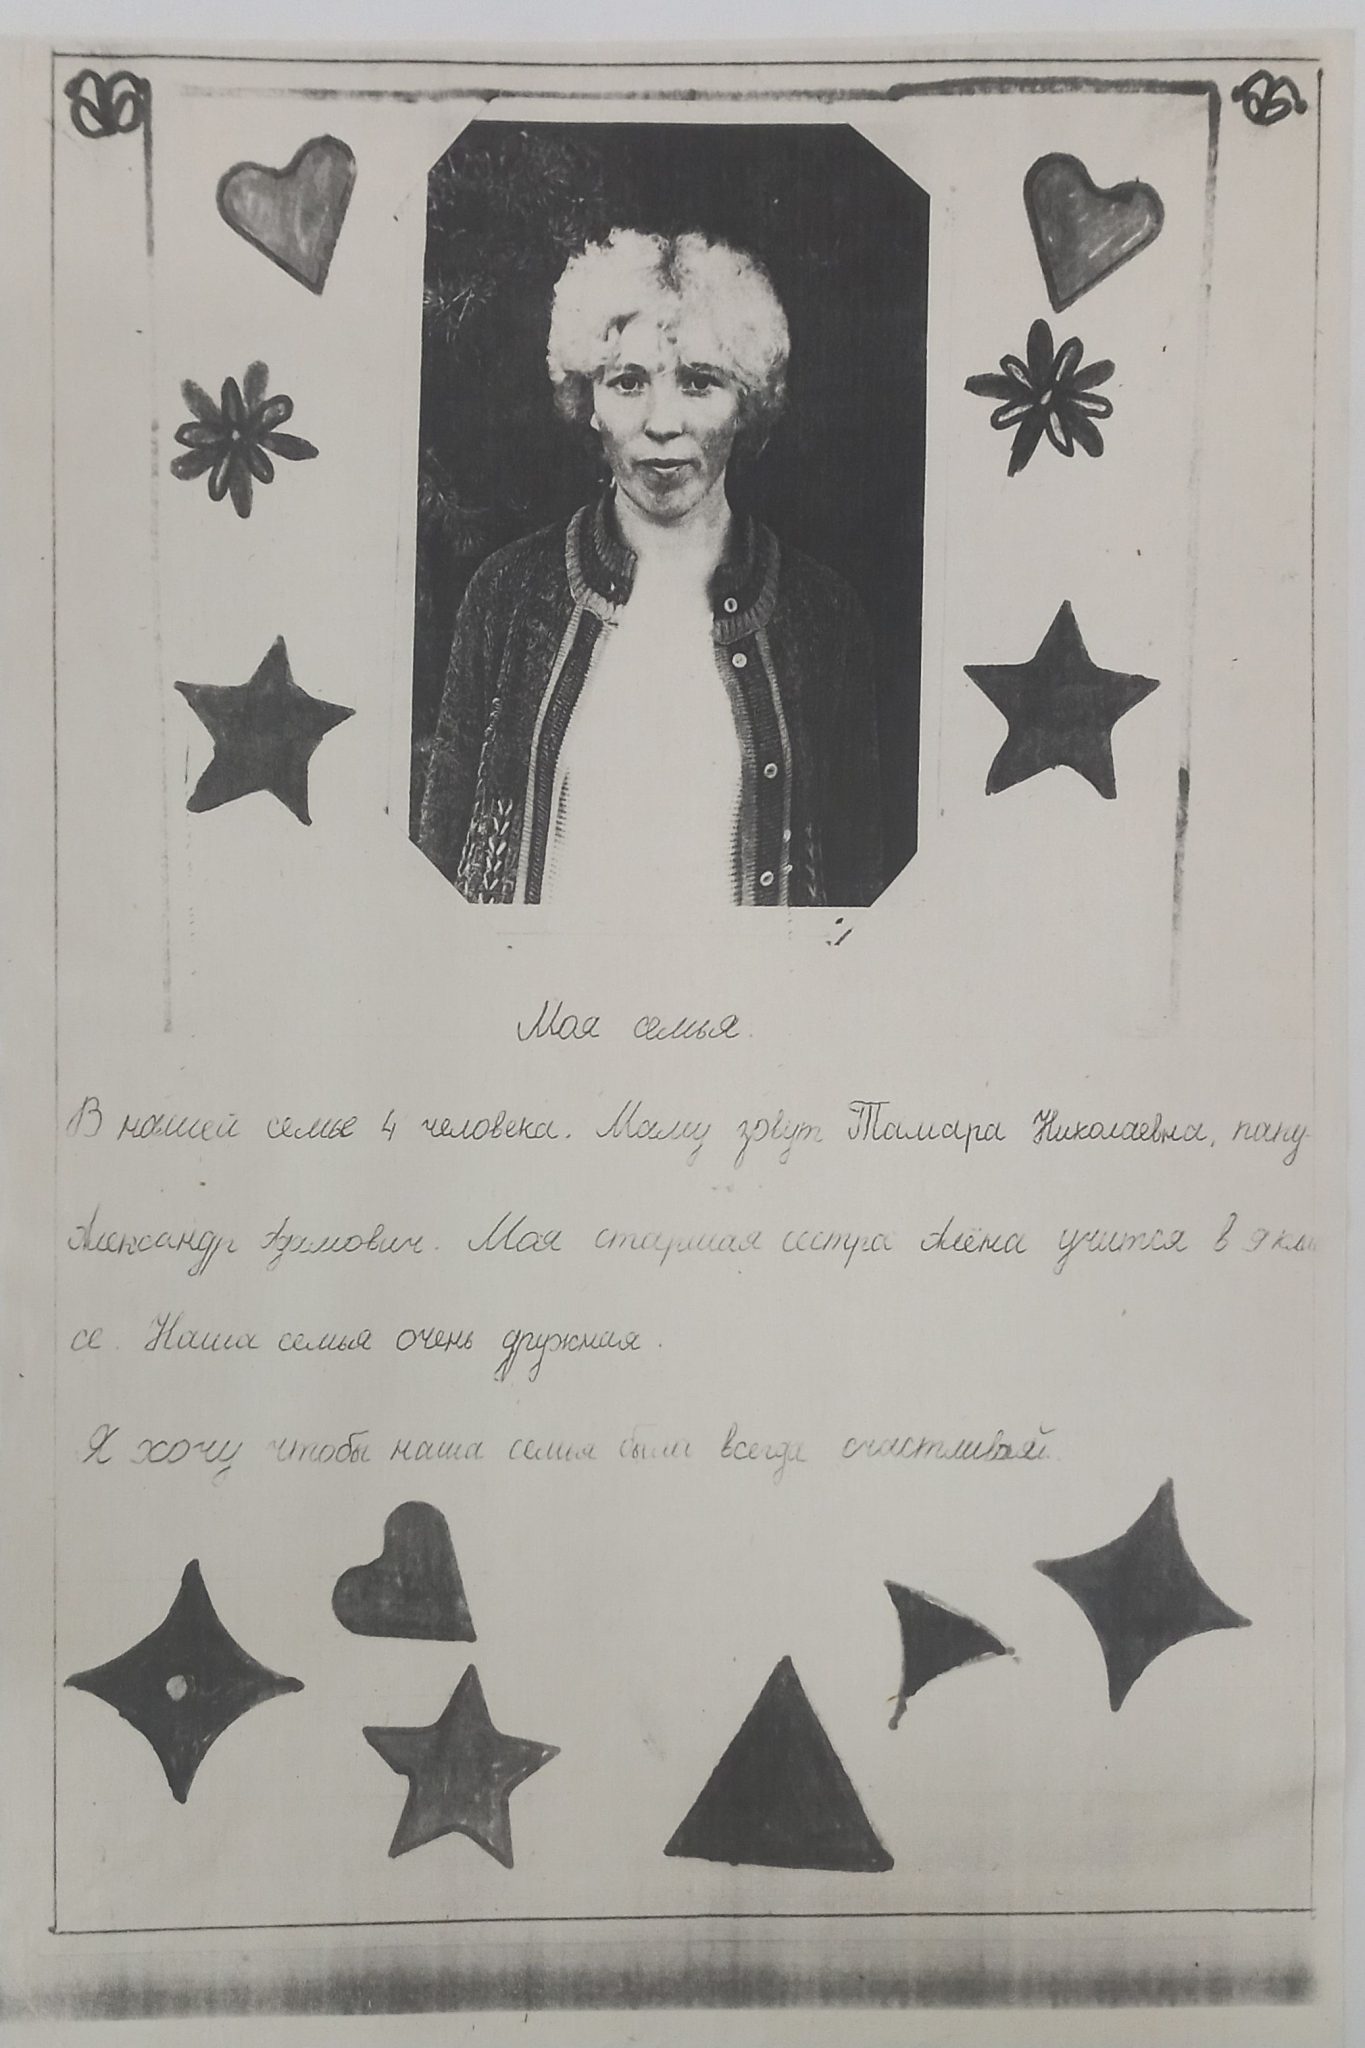 Моя семья.
В нашей семье 4 человека. Маму зовут Тамара Николаевна, папу-
Александр Адамович. Моя старшая сестра Алёна учится в 9 клас
се. Наша семья очень дружная.
Я хочу чтобы наша семья была всегда счастливай.